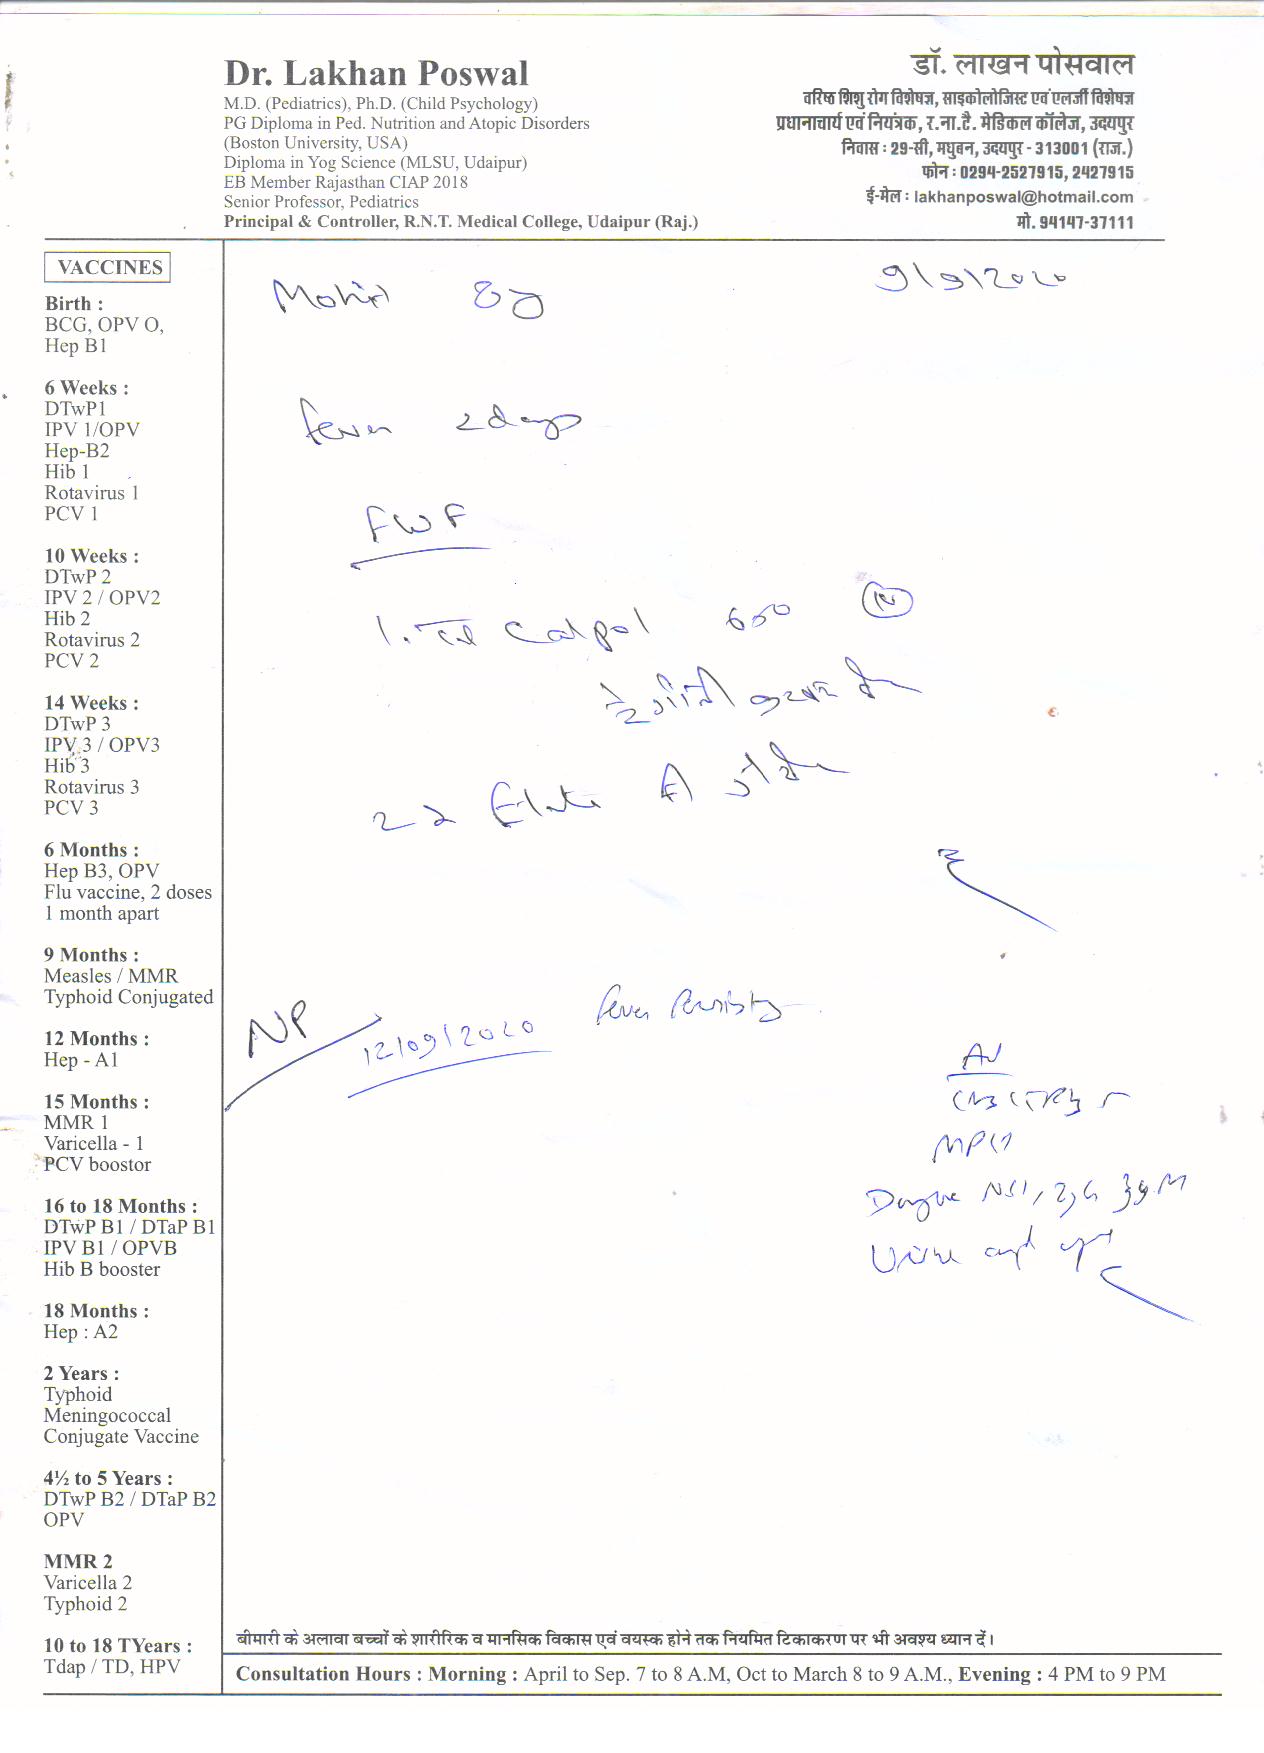 Dr. Lakhan Poswal
M.D. (Pediatrics), Ph.D. (Child Psychology)
PG Diploma in Ped. Nutrition and Atopic Disorders
(Boston University, USA)
Diploma in Yog Science (MLSU, Udaipur)
EB Member Rajasthan CIAP 2018
Senior Professor, Pediatrics
Principal & Controller, R.N.T. Medical College, Udaipur (Raj.)
डॉ. लाखन पोसवाल
वरिष्ठ शिशु रोग विशेषज्ञ, साइकोलोजिस्ट एवं एलर्जी विशेषज्ञ
प्रधानाचार्य एवं नियंत्रक, र.ना.टै. मेडिकल कॉलेज, उदयपुर
निवास : 29-सी, मधुबन, उदयपुर - 313001 (राज.)
फोन : 0294-2527915, 2427915
ई-मेल : lakhanposwal@hotmail.com
मो. 94147-37111
VACCINES
Birth :
BCG, OPV O,
Hep B1
6 Weeks :
DTwP1
IPV 1/OPV
Hep-B2
Hib 1
Rotavirus 1
PCV 1
10 Weeks :
DTwP 2
IPV 2 / OPV2
Hib 2
Rotavirus 2
PCV 2
14 Weeks :
DTwP 3
IPV 3 / OPV3
Hib 3
Rotavirus 3
PCV 3
6 Months :
Hep B3, OPV
Flu vaccine, 2 doses
1 month apart
9 Months :
Measles / MMR
Typhoid Conjugated
12 Months :
Hep - A1
15 Months :
MMR 1
Varicella - 1
PCV boostor
16 to 18 Months :
DTwP B1 / DTaP B1
IPV B1 / OPVB
Hib B booster
18 Months :
Hep : A2
2 Years :
Typhoid
Meningococcal
Conjugate Vaccine
4½ to 5 Years :
DTwP B2 / DTaP B2
OPV
MMR 2
Varicella 2
Typhoid 2
10 to 18 TYears :
Tdap / TD, HPV
9/9/2020
fever 2 days
FWF
1. Calpol 650
NP
12/09/2020 fever
Adv
Dengue NS1, IgG IgM
Urine
बीमारी के अलावा बच्चों के शारीरिक व मानसिक विकास एवं वयस्क होने तक नियमित टिकाकरण पर भी अवश्य ध्यान दें।
Consultation Hours : Morning : April to Sep. 7 to 8 A.M, Oct to March 8 to 9 A.M., Evening : 4 PM to 9 PM